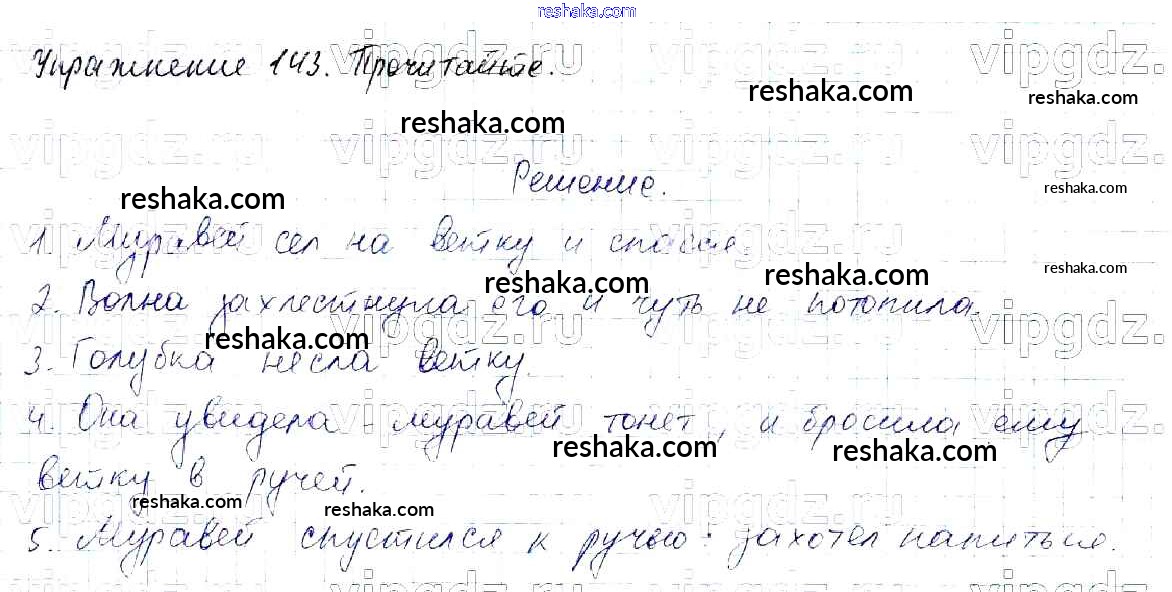 reshaka.com
Упражнение 143. Прочитайте.
reshaka.com
reshaka.com
reshaka.com
Решение.
reshaka.com
reshaka.com
1. Муравей сел на ветку и спасся.
reshaka.com
reshaka.com
reshaka.com
2. Волна захлестнула его и чуть не потопила.
reshaka.com
3. Голубка несла ветку.
4. Она увидела - муравей тонет, и бросила ему
reshaka.com
reshaka.com
ветку в ручей.
reshaka.com
reshaka.com
5. Муравей спустился к ручью: захотел напиться.